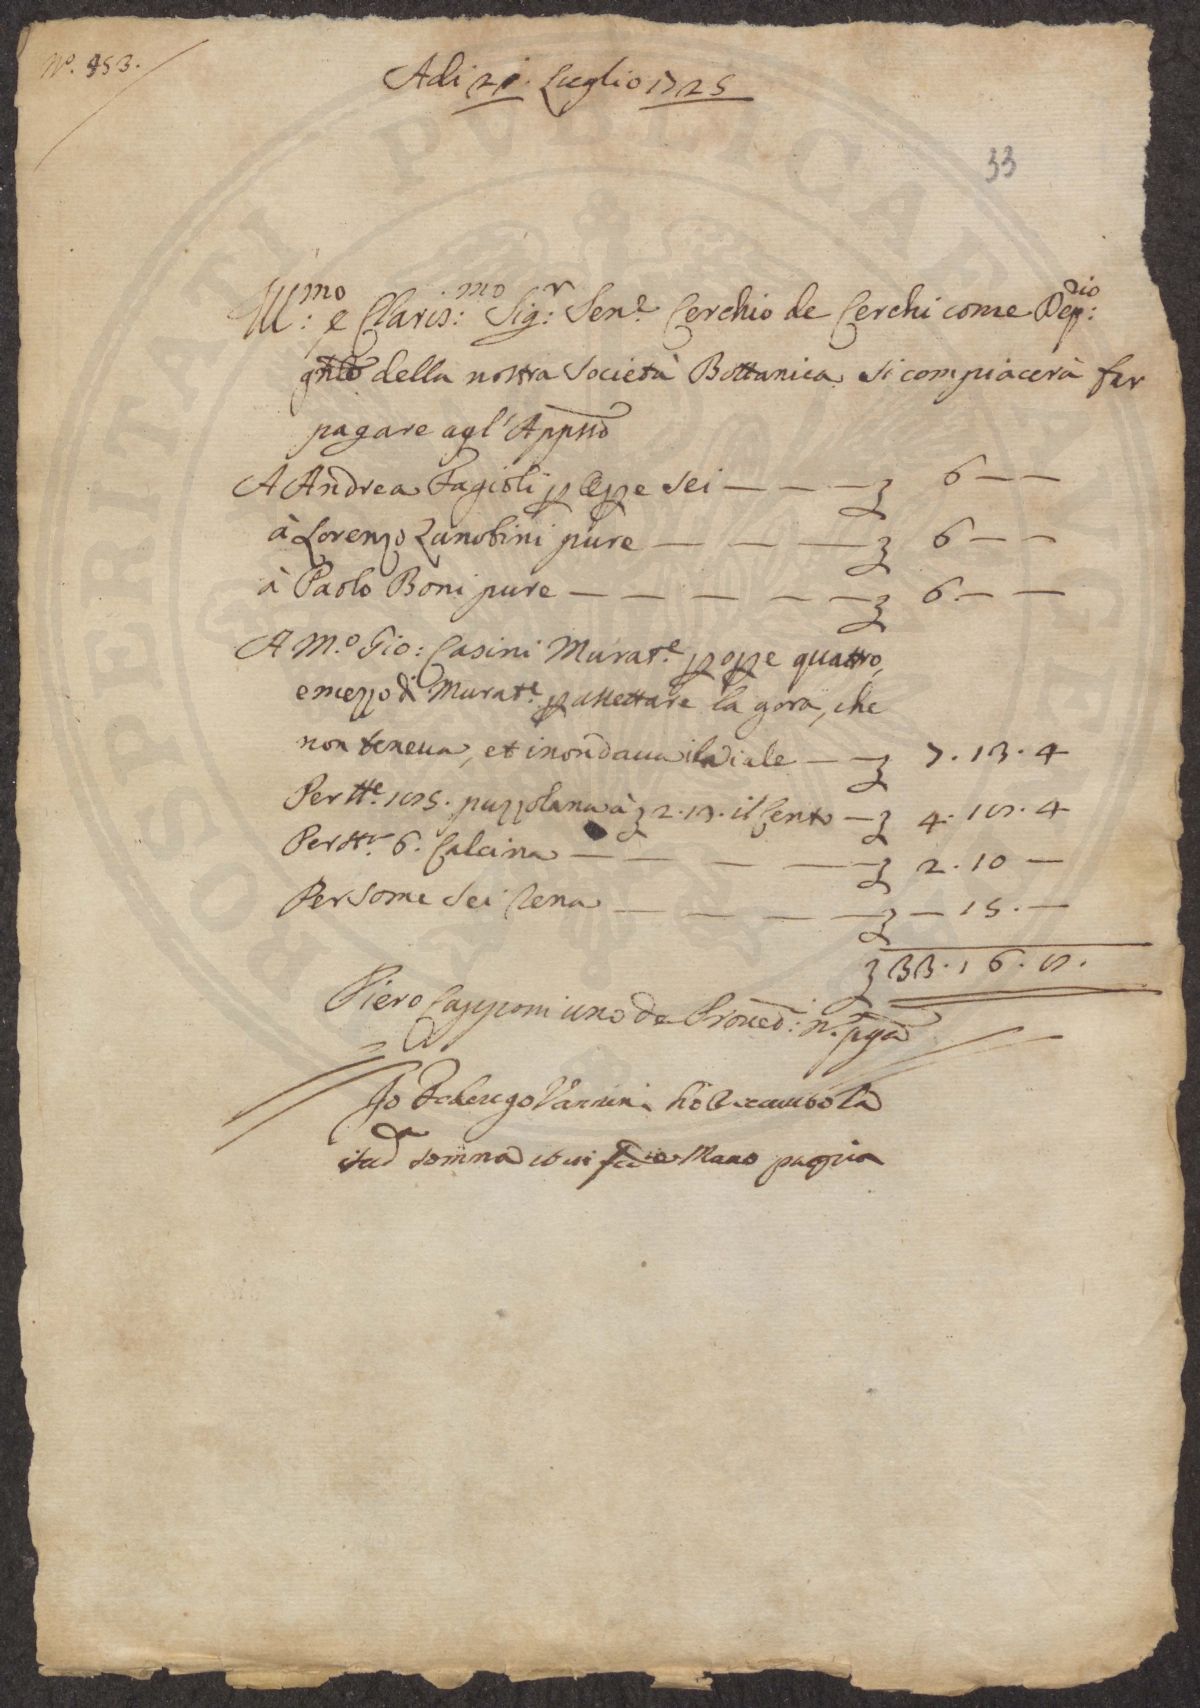 N.º 453.
Adi 21. Luglio 1725
33
Ill:mo e Claris:mo Sig:r Sen.e Cerchio de Cerchi come Dep:rio
gnle della nostra Società Bottanica si compiacerà far
pagare agl' Apptti
A Andrea Fagioli p opre sei — — — 6 — —
à Lorenzo Zanobini pure — — — 6 — —
à Paolo Boni pure — — — — — 6 — —
A M.º Gio: Casini Murat.e p opre quattro,
e mezzo di Murat.e p assettare la gora, che
non teneva, et inondava il viale — 7. 13. 4
Per tt.e 175. puzzolana à 2. 13. il Cento — 4. 4
Per 6. Calcina — — — — 2. 10 —
Per some sei Rena — — — — — 15. —
33. 1 6.
Piero Capponi uno de Proved:
Io Vannini hò Riceuuto la
sud.a somma mano propria